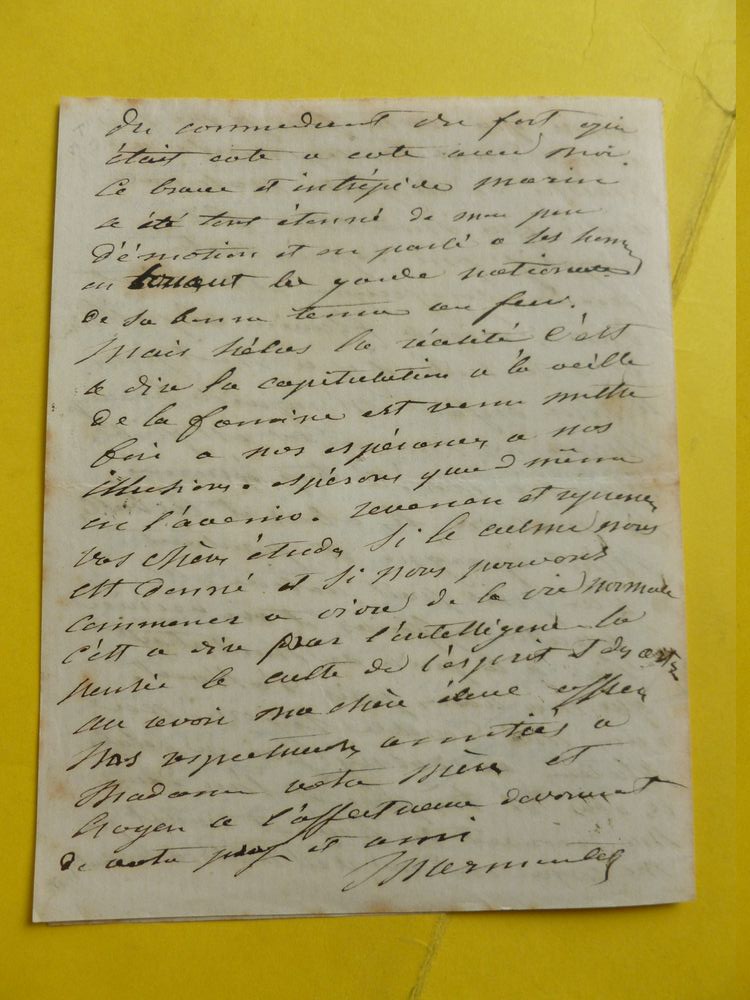 du commandant du fort qui
était cote a cote avec moi
Ce brave et intrépide marin
a été tout étonné de mon peu
d'émotion et en parlé a ses hommes
en louant la garde nationale
de sa bonne tenue au feu.
Mais hélas la réalité c'est
a dire la capitulation a la veille
de la famine est venu mettre
fin a nos espérances a nos
illusions. espérons quand même
en l'avenir. revenez et reprenez
vos chères études si le calme nous
est donné et si nous pouvons
commencer a vivre de la vie normale
c'est a dire par l'intelligence la
pensée le culte de l'esprit et des arts
au revoir ma chère élève offrez
mes respectueuses amitiés a
Madame votre mère et
croyez a l'affectueux dévouement
de votre prof et ami
Marmontel